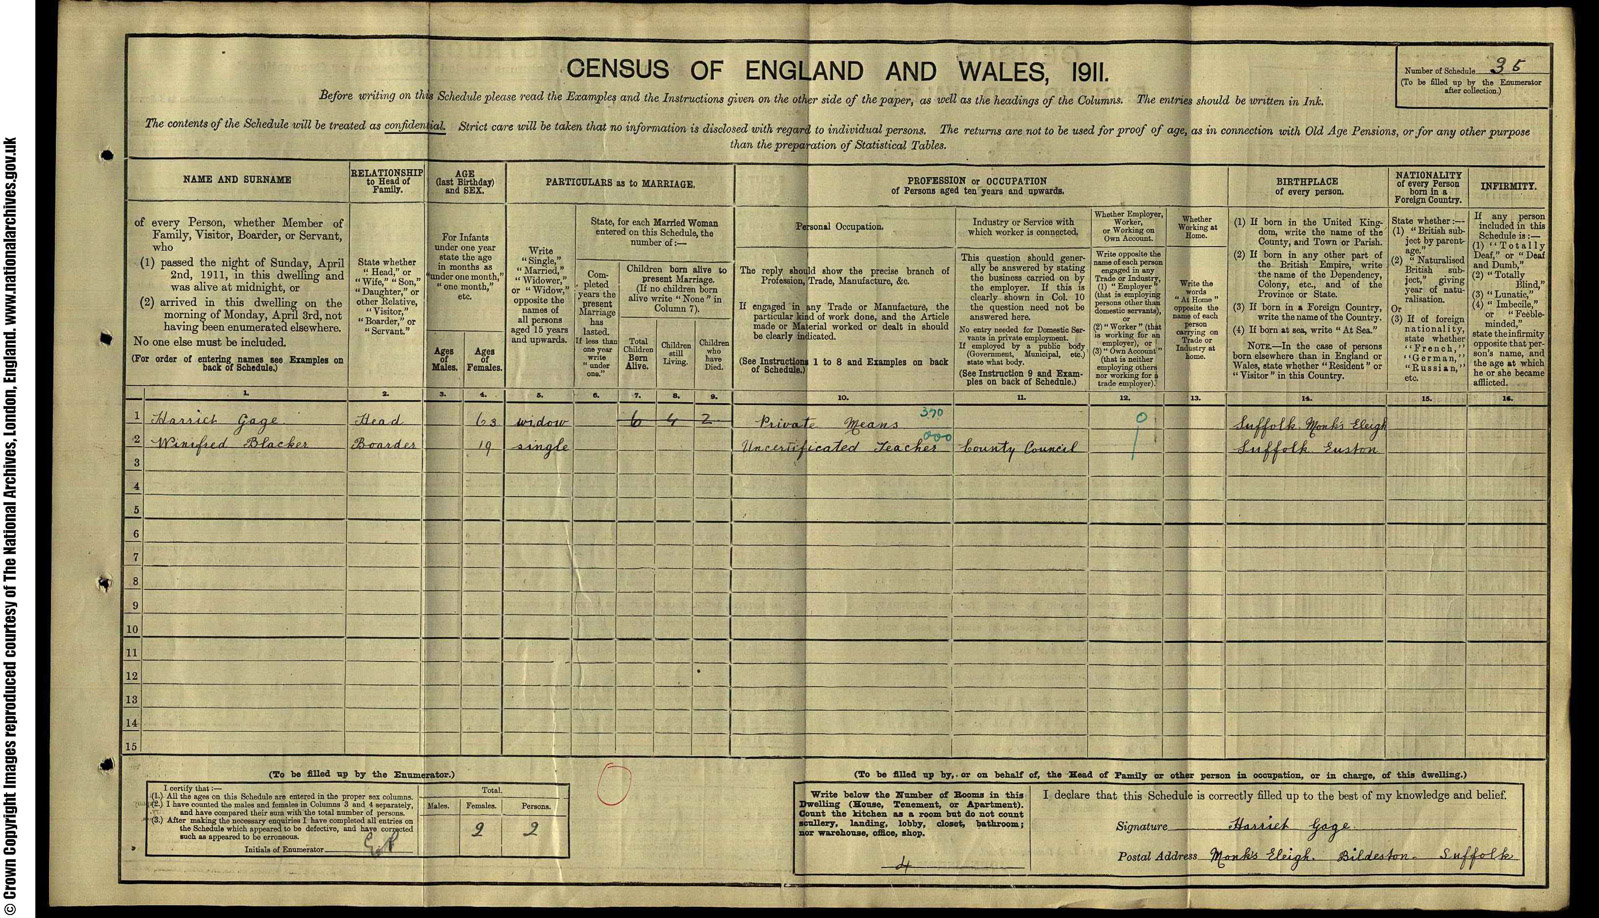 © Crown Copyright Images reproduced courtesy of The National Archives, London, England. www.nationalarchives.gov.uk
CENSUS OF ENGLAND AND WALES, 1911.
Number of Schedule 35
(To be filled up by the Enumerator
after collection.)
Before writing on this Schedule please read the Examples and the Instructions given on the other side of the paper, as well as the headings of the Columns. The entries should be written in Ink.
The contents of the Schedule will be treated as confidential. Strict care will be taken that no information is disclosed with regard to individual persons. The returns are not to be used for proof of age, as in connection with Old Age Pensions, or for any other purpose
than the preparation of Statistical Tables.
NAME AND SURNAME
of every Person, whether Member of
Family, Visitor, Boarder, or Servant,
who
(1) passed the night of Sunday, April
2nd, 1911, in this dwelling and
was alive at midnight, or
(2) arrived in this dwelling on the
morning of Monday, April 3rd, not
having been enumerated elsewhere.
No one else must be included.
(For order of entering names see Examples on
back of Schedule.)
RELATIONSHIP
to Head of
Family.
State whether
"Head," or
"Wife," "Son,"
"Daughter," or
other Relative,
"Visitor,"
"Boarder," or
"Servant."
AGE
(last Birthday)
and SEX.
For Infants
under one year
state the age
in months as
"under one month,"
"one month,"
etc.
Ages
of
Males.
Ages
of
Females.
PARTICULARS as to MARRIAGE.
Write
"Single,"
"Married,"
"Widower,"
or "Widow,"
opposite the
names of
all persons
aged 15 years
and upwards.
State, for each Married Woman
entered on this Schedule, the
number of:—
Com-
pleted
years the
present
Marriage
has
lasted.
If less than
one year
write
"under
one."
Children born alive to
present Marriage.
(If no children born
alive write "None" in
Column 7).
Total
Children
Born
Alive.
Children
still
Living.
Children
who
have
Died.
PROFESSION or OCCUPATION
of Persons aged ten years and upwards.
Personal Occupation.
The reply should show the precise branch of
Profession, Trade, Manufacture, &c.
If engaged in any Trade or Manufacture, the
particular kind of work done, and the Article
made or Material worked or dealt in should
be clearly indicated.
(See Instructions 1 to 8 and Examples on back
of Schedule.)
Industry or Service with
which worker is connected.
This question should gener-
ally be answered by stating
the business carried on by
the employer. If this is
clearly shown in Col. 10
the question need not be
answered here.
No entry needed for Domestic Ser-
vants in private employment.
If employed by a public body
(Government, Municipal, etc.)
state what body.
(See Instruction 9 and Exam-
ples on back of Schedule.)
Whether Employer,
Worker,
or Working on
Own Account.
Write opposite the
name of each person
engaged in any
Trade or Industry,
(1) "Employer"
(that is employing
persons other than
domestic servants),
or
(2) "Worker" (that
is working for an
employer), or
(3) "Own Account"
(that is neither
employing others
nor working for a
trade employer).
Whether
Working at
Home.
Write the
words
"At Home"
opposite the
name of each
person
carrying on
Trade or
Industry at
home.
BIRTHPLACE
of every person.
(1) If born in the United King-
dom, write the name of the
County, and Town or Parish.
(2) If born in any other part of
the British Empire, write
the name of the Dependency,
Colony, etc., and of the
Province or State.
(3) If born in a Foreign Country,
write the name of the Country.
(4) If born at sea, write "At Sea."
NOTE.—In the case of persons
born elsewhere than in England or
Wales, state whether "Resident" or
"Visitor" in this Country.
NATIONALITY
of every Person
born in a
Foreign Country.
State whether:—
(1) "British sub-
ject by parent-
age."
(2) "Naturalised
British sub-
ject," giving
year of natu-
ralisation.
Or
(3) If of foreign
nationality,
state whether
"French,"
"German,"
"Russian,"
etc.
INFIRMITY.
If any person
included in this
Schedule is:—
(1) "Totally
Deaf," or "Deaf
and Dumb,"
(2) "Totally
Blind,"
(3) "Lunatic,"
(4) "Imbecile,"
or "Feeble-
minded,"
state the infirmity
opposite that per-
son's name, and
the age at which
he or she became
afflicted.
1. 2. 3. 4. 5. 6. 7. 8. 9. 10. 11. 12. 13. 14. 15. 16.
1 Harriet Gage Head 63 widow 6 4 2 Private Means 370 0 Suffolk Monk's Eleigh
2 Winifred Blacker Boarder 19 single Uncertificated Teacher 000 County Council Suffolk Euston
3
4
5
6
7
8
9
10
11
12
13
14
15
(To be filled up by the Enumerator.)
I certify that:—
(1.) All the ages on this Schedule are entered in the proper sex columns.
(2.) I have counted the males and females in Columns 3 and 4 separately,
and have compared their sum with the total number of persons.
(3.) After making the necessary enquiries I have completed all entries on
the Schedule which appeared to be defective, and have corrected
such as appeared to be erroneous.
Initials of Enumerator
Total.
Males. Females. Persons.
2 2
(To be filled up by, or on behalf of, the Head of Family or other person in occupation, or in charge, of this dwelling.)
Write below the Number of Rooms in this
Dwelling (House, Tenement, or Apartment).
Count the kitchen as a room but do not count
scullery, landing, lobby, closet, bathroom;
nor warehouse, office, shop.
4
I declare that this Schedule is correctly filled up to the best of my knowledge and belief.
Signature Harriet Gage
Postal Address Monk's Eleigh. Bildeston. Suffolk